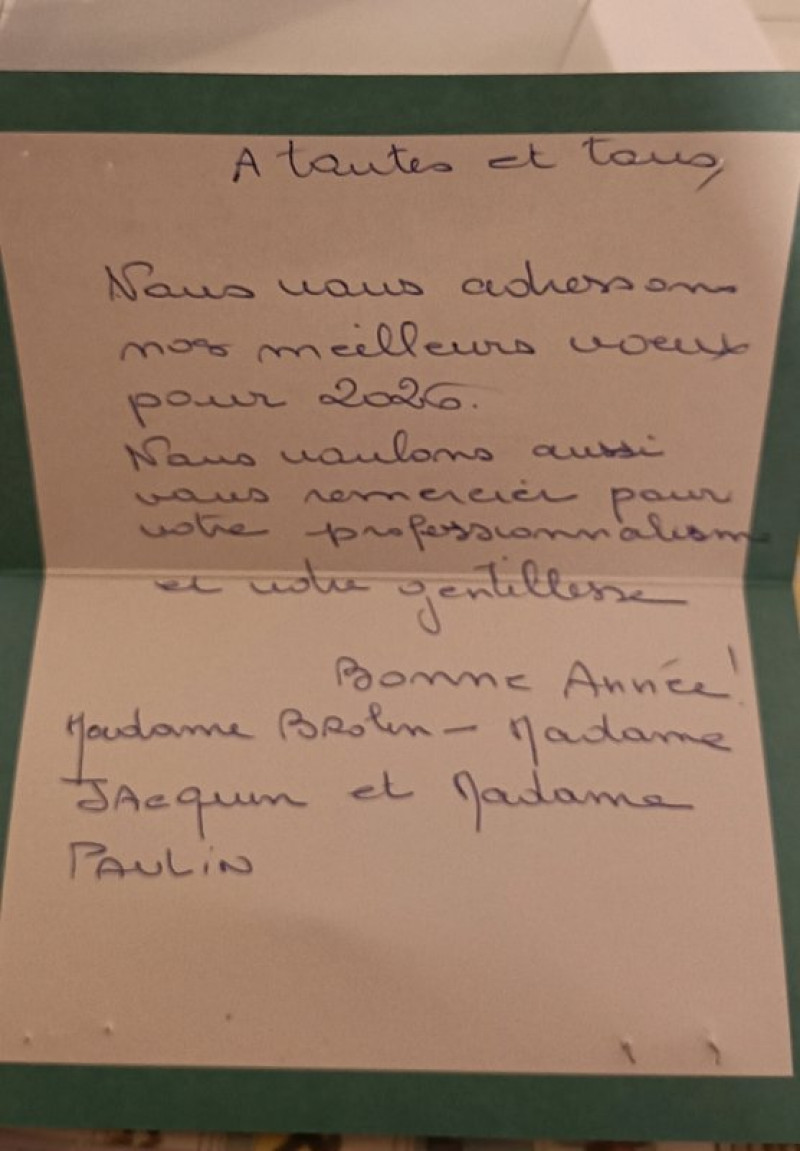 A toutes et tous,
Nous vous adressons
nos meilleurs voeux
pour 2026.
Nous voulons aussi
vous remercier pour
votre professionnalism
et votre gentillesse
Bonne Année!
Madame BRolin - Madame
JAcquin et Madame
PAULiN